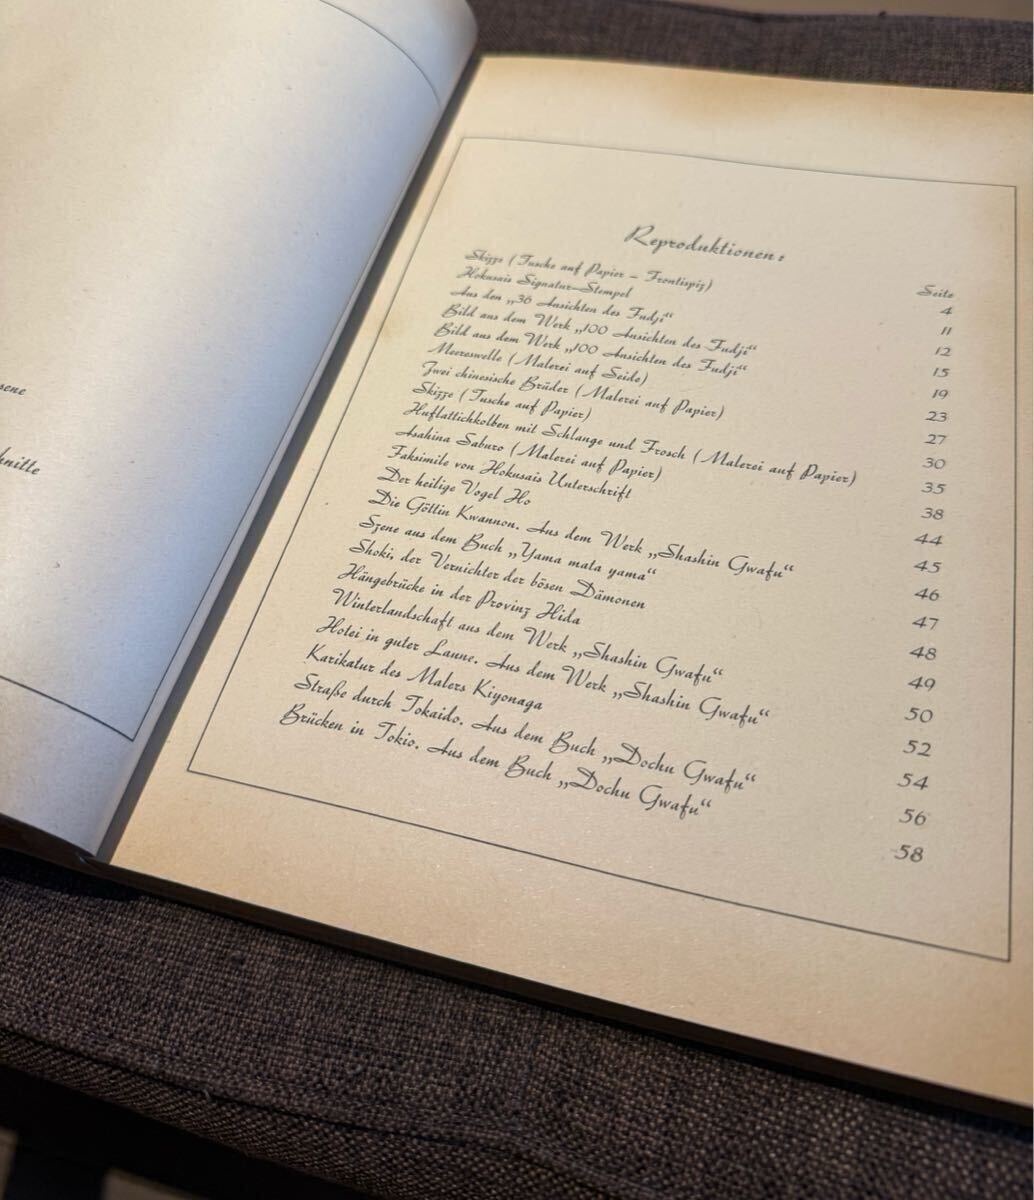 sene
hnitte
Reproduktionen:
Seite
Skizze (Tusche auf Papier – Frontispiz) 4
Hokusais Signatur–Stempel 11
Aus den „36 Ansichten des Fudji“ 12
Bild aus dem Werk „100 Ansichten des Fudji“ 15
Bild aus dem Werk „100 Ansichten des Fudji“ 19
Meereswelle (Malerei auf Seide) 23
Zwei chinesische Brüder (Malerei auf Papier) 27
Skizze (Tusche auf Papier) 30
Huflattichkolben mit Schlange und Frosch (Malerei auf Papier) 35
Asahina Saburo (Malerei auf Papier) 38
Faksimile von Hokusais Unterschrift 44
Der heilige Vogel Ho 45
Die Göttin Kwannon. Aus dem Werk „Shashin Gwafu“ 46
Szene aus dem Buch „Yama mata yama“ 47
Shoki, der Vernichter der bösen Dämonen 48
Hängebrücke in der Provinz Hida 49
Winterlandschaft aus dem Werk „Shashin Gwafu“ 50
Hotei in guter Laune. Aus dem Werk „Shashin Gwafu“ 52
Karikatur des Malers Kiyonaga 54
Straße durch Tokaido. Aus dem Buch „Dochu Gwafu“ 56
Brücken in Tokio. Aus dem Buch „Dochu Gwafu“ 58